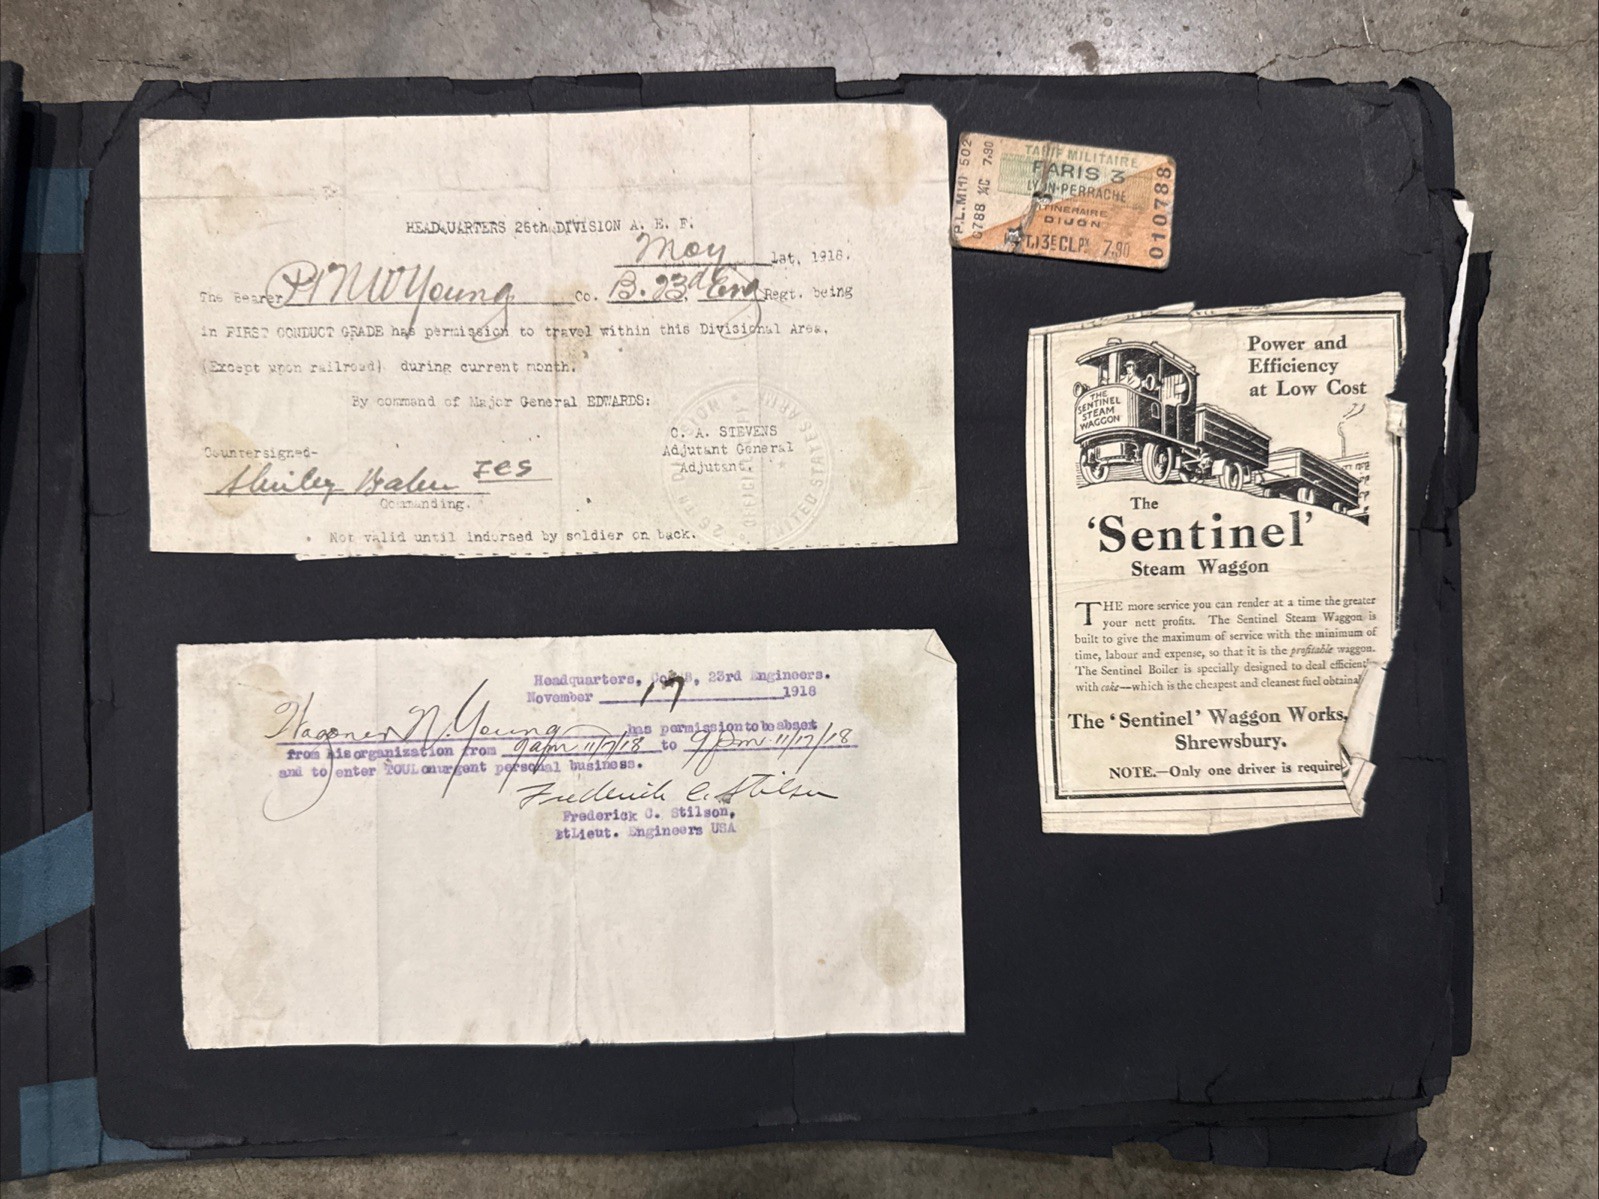 HEADQUARTERS 26th DIVISION A. E. F.
May 1st, 1918.
The Bearer Pt N W Young Co. B. 23d Eng Regt. being
in FIRST CONDUCT GRADE has permission to travel within this Divisional Area,
(Except upon railroad) during current month.
By command of Major General EDWARDS:
C. A. STEVENS
Adjutant General
Adjutant.
Countersigned-
Commanding.
Not valid until indorsed by soldier on back.
UNITED STATES ARMY
Headquarters, Co. B, 23rd Engineers.
November 17 1918
Wagoner N. Young has permission to be absent
from his organization from 9am 11/17/18 to 9pm 11/17/18
and to enter TOUL on urgent personal business.
Frederick C. Stilson
Frederick C. Stilson,
1st Lieut. Engineers USA
TARIF MILITAIRE
PARIS 3
LYON-PERRACHE
ITINERAIRE
DIJON
7,90
010788
The
SENTINEL
STEAM
WAGGON
Power and
Efficiency
at Low Cost
The
'Sentinel'
Steam Waggon
THE more service you can render at a time the greater
your nett profits. The Sentinel Steam Waggon is
built to give the maximum of service with the minimum of
time, labour and expense, so that it is the profitable waggon.
The Sentinel Boiler is specially designed to deal efficient
with coke—which is the cheapest and cleanest fuel obtaina
The 'Sentinel' Waggon Works,
Shrewsbury.
NOTE.—Only one driver is require